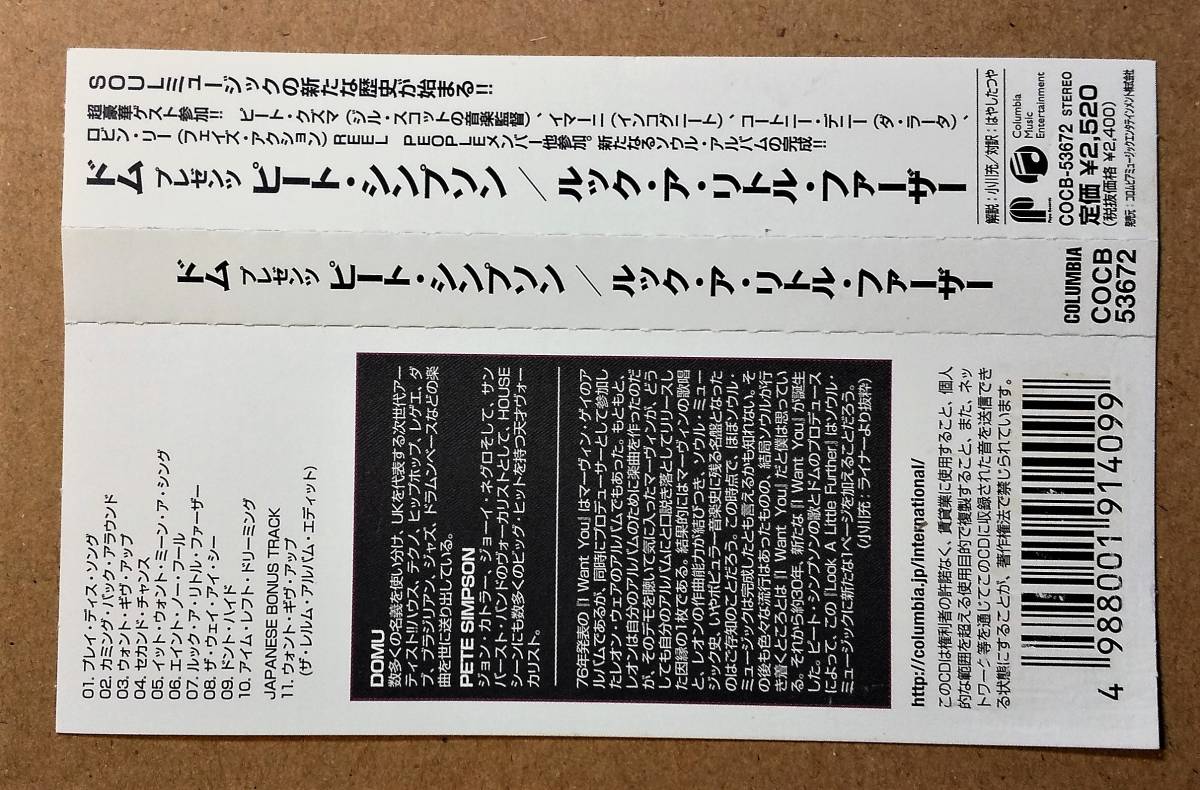 SOULミュージックの新たな歴史が始まる!!
超豪華ゲスト参加!! ピート・クズマ(ジル・スコットの音楽監督)、イマーニ(インコグニート)、コートニー・デニー(ダ・ラータ)、
ロビン・リー(フェイズ・アクション)REEL PEOPLEメンバー他参加。新たなるソウル・アルバムの完成!!
ドム プレゼンツ ピート・シンプソン/ルック・ア・リトル・ファーザー
解説:小川充/対訳:はやしたつや
Columbia
Music
Entertainment
COCB-53672 STEREO
定価 ¥2,520
(税抜価格 ¥2,400)
発売元:コロムビアミュージックエンタテインメント株式会社
ドム プレゼンツ ピート・シンプソン/ルック・ア・リトル・ファーザー
COLUMBIA
COCB
53672
01. プレイ・ディス・ソング
02. カミング・バック・アラウンド
03. ウォント・ギヴ・アップ
04. セカンド・チャンス
05. イット・ウォント・ミーン・ア・シング
06. エイント・ノー・フール
07. ルック・ア・リトル・ファーザー
08. ザ・ウェイ・アイ・シー
09. ドント・ハイド
10. アイム・レフト・ドリーミング
JAPANESE BONUS TRACK
11. ウォント・ギヴ・アップ
(ザ・レルム・アルバム・エディット)
DOMU
数多くの名義を使い分け、UKを代表する次世代アー
ティスト!ハウス、テクノ、ヒップホップ、レゲエ、ダ
ブ、ブラジリアン、ジャズ、ドラムンベースなどの楽
曲を世に送り出している。
PETE SIMPSON
ジョン・カトラー、ジョーイ・ネグロそして、サン
バースト・バンドのヴォーカリストとして、HOUSE
シーンにも数多くのビッグ・ヒットを持つ天才ヴォー
カリスト。
76年発表の『I Want You』はマーヴィン・ゲイのア
ルバムであるが、同時にプロデューサーとして参加し
たレオン・ウェアのアルバムでもあった。もともと、
レオンは自分のアルバムのために楽曲を作ったのだ
が、そのデモを聴いて気に入ったマーヴィンが、どう
しても自分のアルバムにと口説き落としてリリースし
た因縁の1枚である。結果的にはマーヴィンの歌唱
と、レオンの作曲能力が結びつき、ソウル・ミュー
ジック史、いやポピュラー音楽史に残る名盤となった
のはご存知のことだろう。この時点で、ほぼソウル・
ミュージックは完成したとも言えるかも知れない。そ
の後も色々な流行はあったものの、結局ソウルが行
き着くところとは『I Want You』だと僕は思ってい
る。それから約30年、新たな『I Want You』が誕生
した。ピート・シンプソンの歌とドムのプロデュース
によって、この『Look A Little Further』はソウル・
ミュージックに新たな1ページを加えることだろう。
(小川充:ライナーより抜粋)
http://columbia.jp/international/
このCDは権利者の許諾なく、賃貸業に使用すること、個人
的な範囲を超える使用目的で複製すること、また、ネッ
トワーク等を通じてこのCDに収録された音を送信でき
る状態にすることが、著作権法で禁じられています。
4 988001 914099